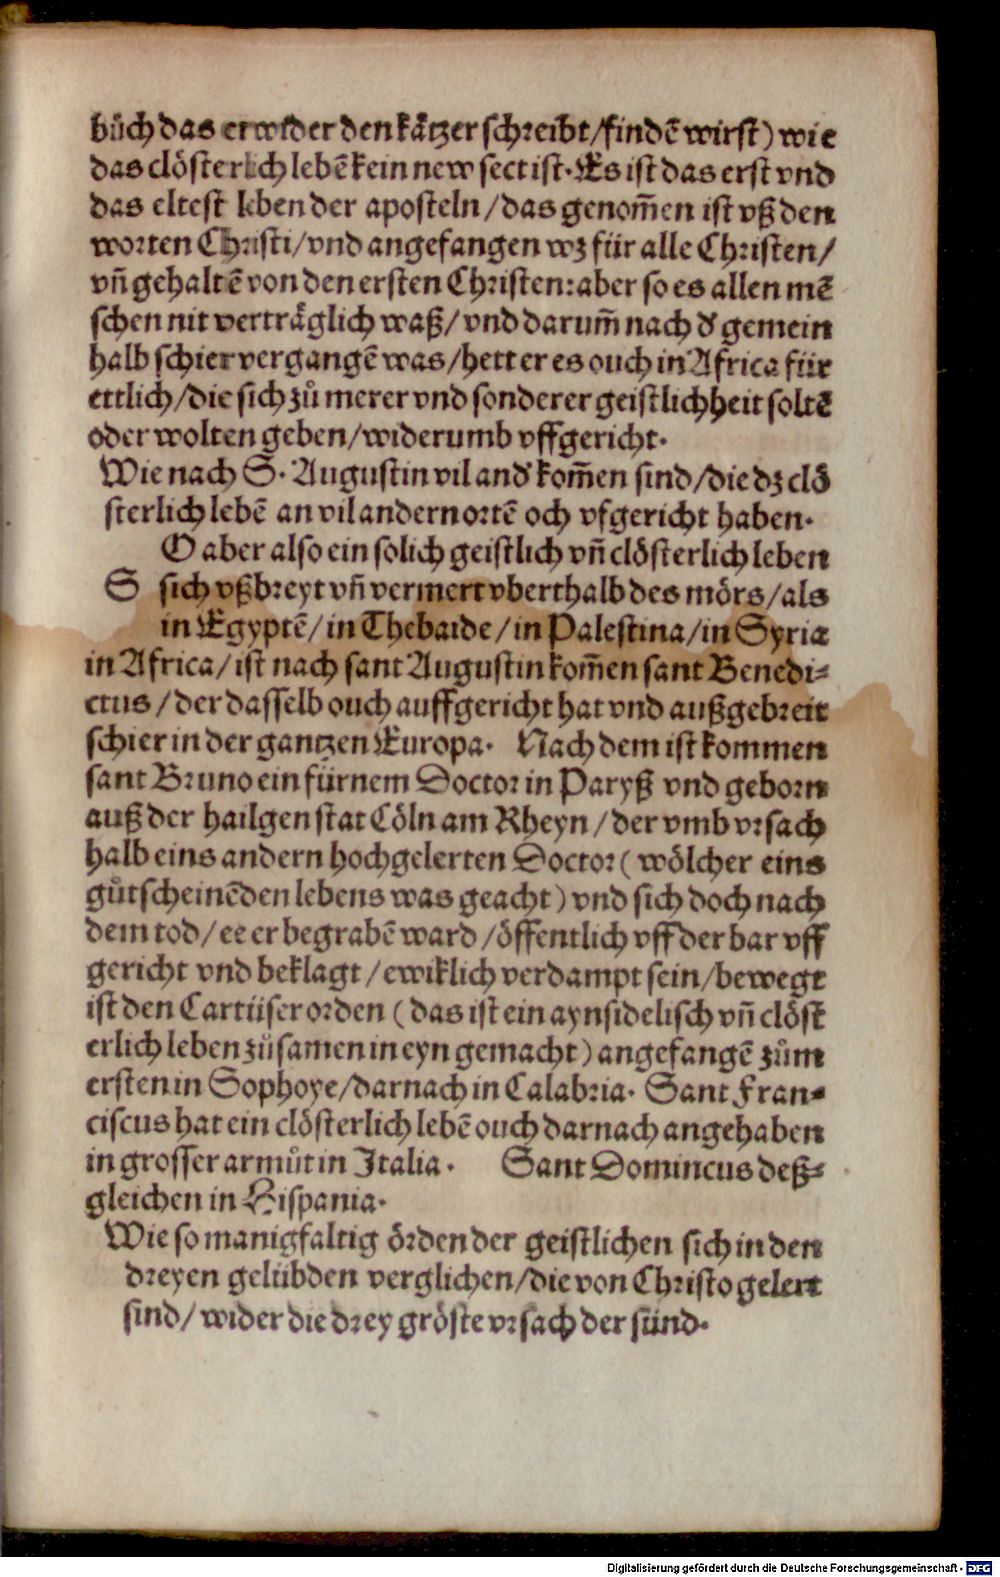 bůch das er wider den kätzer schreibt/findē wirst) wie
das clösterlich lebē kein new sect ist. Es ist das erst vnd
das eltest leben der aposteln/das genom̄en ist vß den
worten Christi/vnd angefangen wz für alle Christen/
vn̄ gehaltē von den ersten Christen: aber so es allen mē
schen nit verträglich waß/vnd darum̄ nach d' gemein
halb schier vergangē was/hett er es ouch in Africa für
ettlich/die sich zů merer vnd sonderer geistlichheit soltē
oder wolten geben/widerumb vffgericht.
Wie nach S. Augustin vil and' kom̄en sind/die dz clö
sterlich lebē an vil andern ortē och vfgericht haben.
O aber also ein solich geistlich vn̄ clösterlich leben
S sich vßbreyt vn̄ vermert vberthalb des mörs/als
in Egyptē/in Thebaide/in Palestina/in Syria
in Africa/ist nach sant Augustin kom̄en sant Benedi-
ctus/der dasselb ouch auffgericht hat vnd außgebreit
schier in der gantzen Europa. Nach dem ist kommen
sant Bruno ein fürnem Doctor in Paryß vnd geborn
auß der hailgen stat Cöln am Rheyn/der vmb vrsach
halb eins andern hochgelerten Doctor (wölcher eins
gůtscheinēden lebens was geacht) vnd sich doch nach
dem tod/ee er begrabē ward/öffentlich vff der bar vff
gericht vnd beklagt/ewiklich verdampt sein/bewegt
ist den Cartüser orden (das ist ein aynsidelisch vn̄ clöst
erlich leben zůsamen in eyn gemacht) angefangē zům
ersten in Sophoye/darnach in Calabria. Sant Fran-
ciscus hat ein clösterlich lebē ouch darnach angehaben
in grosser armůt in Italia. Sant Domincus deß-
gleichen in Hispania.
Wie so manigfaltig örden der geistlichen sich in den
dreyen gelübden verglichen/die von Christo gelert
sind/wider die drey gröste vrsach der sünd.
Digitalisierung gefördert durch die Deutsche Forschungsgemeinschaft - DFG